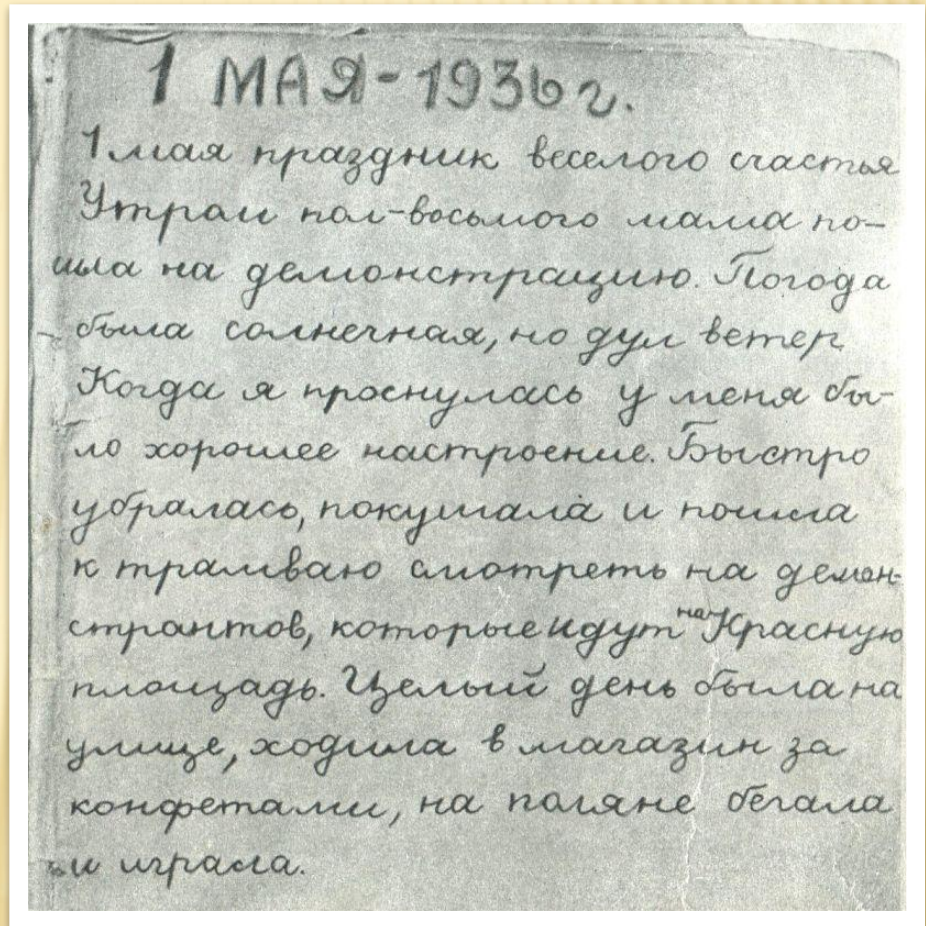 1 МАЯ - 1936 г.
1 мая праздник веселого счастья
Утром пол-восьмого мама по-
шла на демонстрацию. Погода
была солнечная, но дул ветер
Когда я проснулась у меня бы-
ло хорошее настроение. Быстро
убралась, покушала и пошла
к трамваю смотреть на демон-
странтов, которые идут на Красную
площадь. Целый день была на
улице, ходила в магазин за
конфетами, на поляне бегала
и играла.